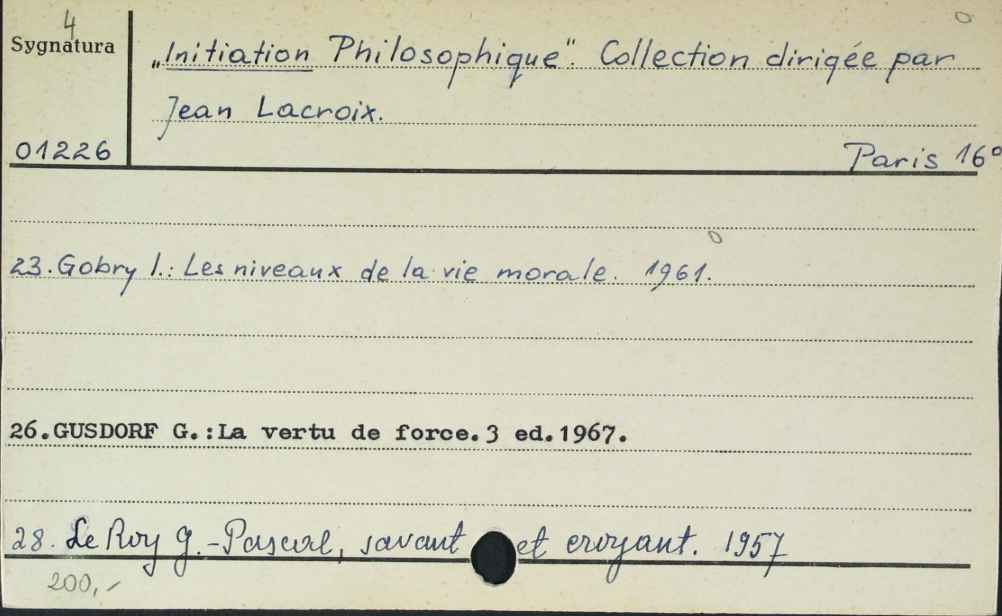 4
Sygnatura
„Initiation Philosophique". Collection dirigée par
Jean Lacroix.
01226
Paris 16°
23. Gobry I.: Les niveaux de la vie morale. 1961.
26.GUSDORF G.:La vertu de force.3 ed.1967.
28. Le Roy G.-Pascal, savant et croyant. 1957
200,-